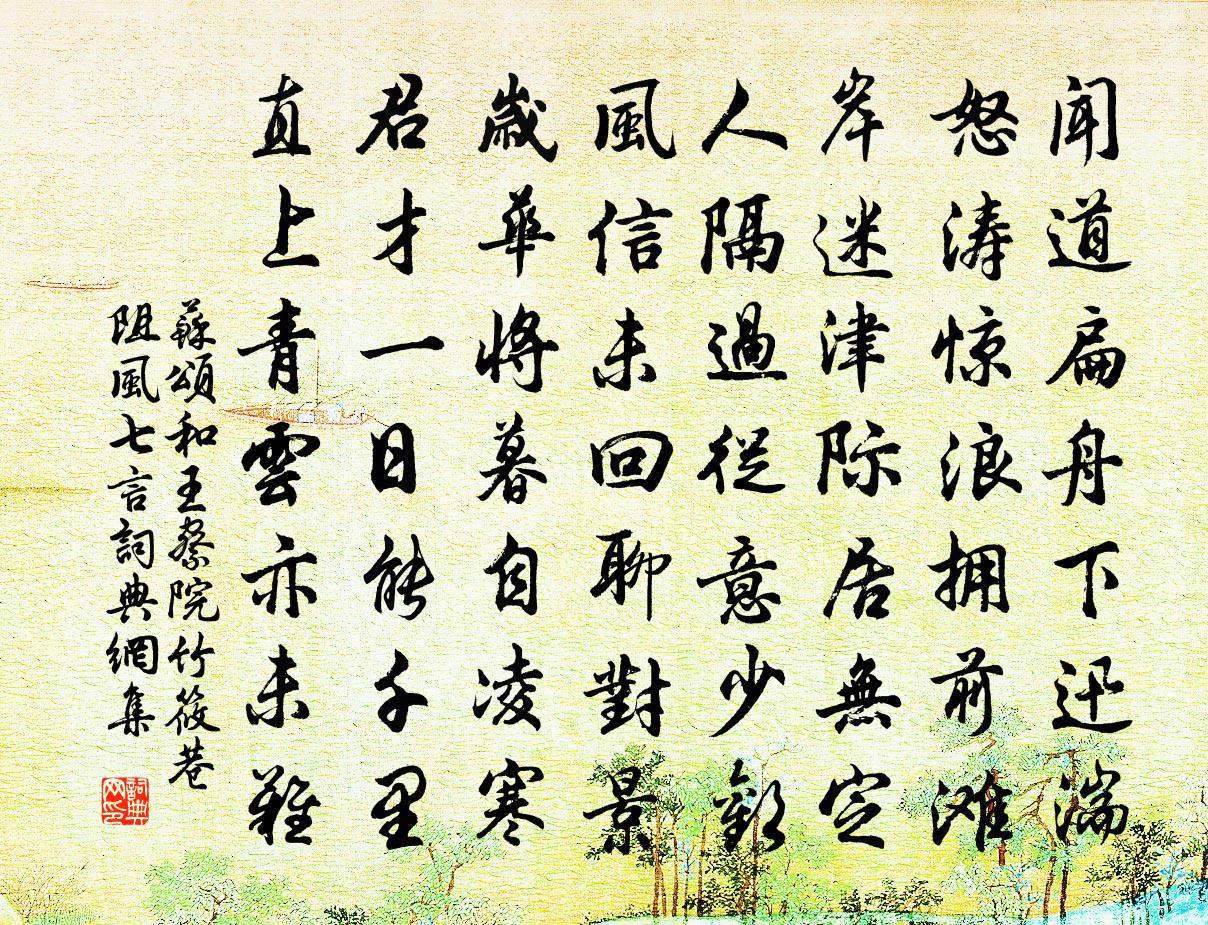 闻道扁舟下迅湍
怒涛惊浪拥前滩
岸迷津际居無定
人隔過從意少歡
風信未回聊對景
歲華将暮自凌寒
君才一日能千里
直上青雲亦未難
蘇頌和王察院竹筱巷
阻風七言詞典網集
詞典